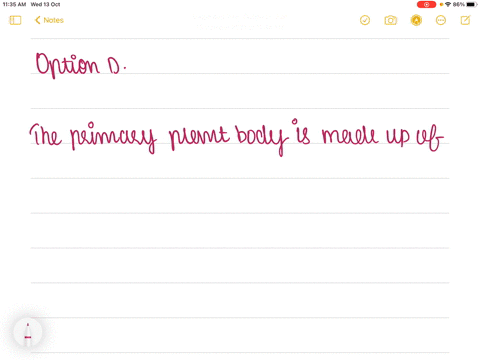 11:35 AM Wed 13 Oct 86%
Notes
Option D.
The primary plant body is made up of